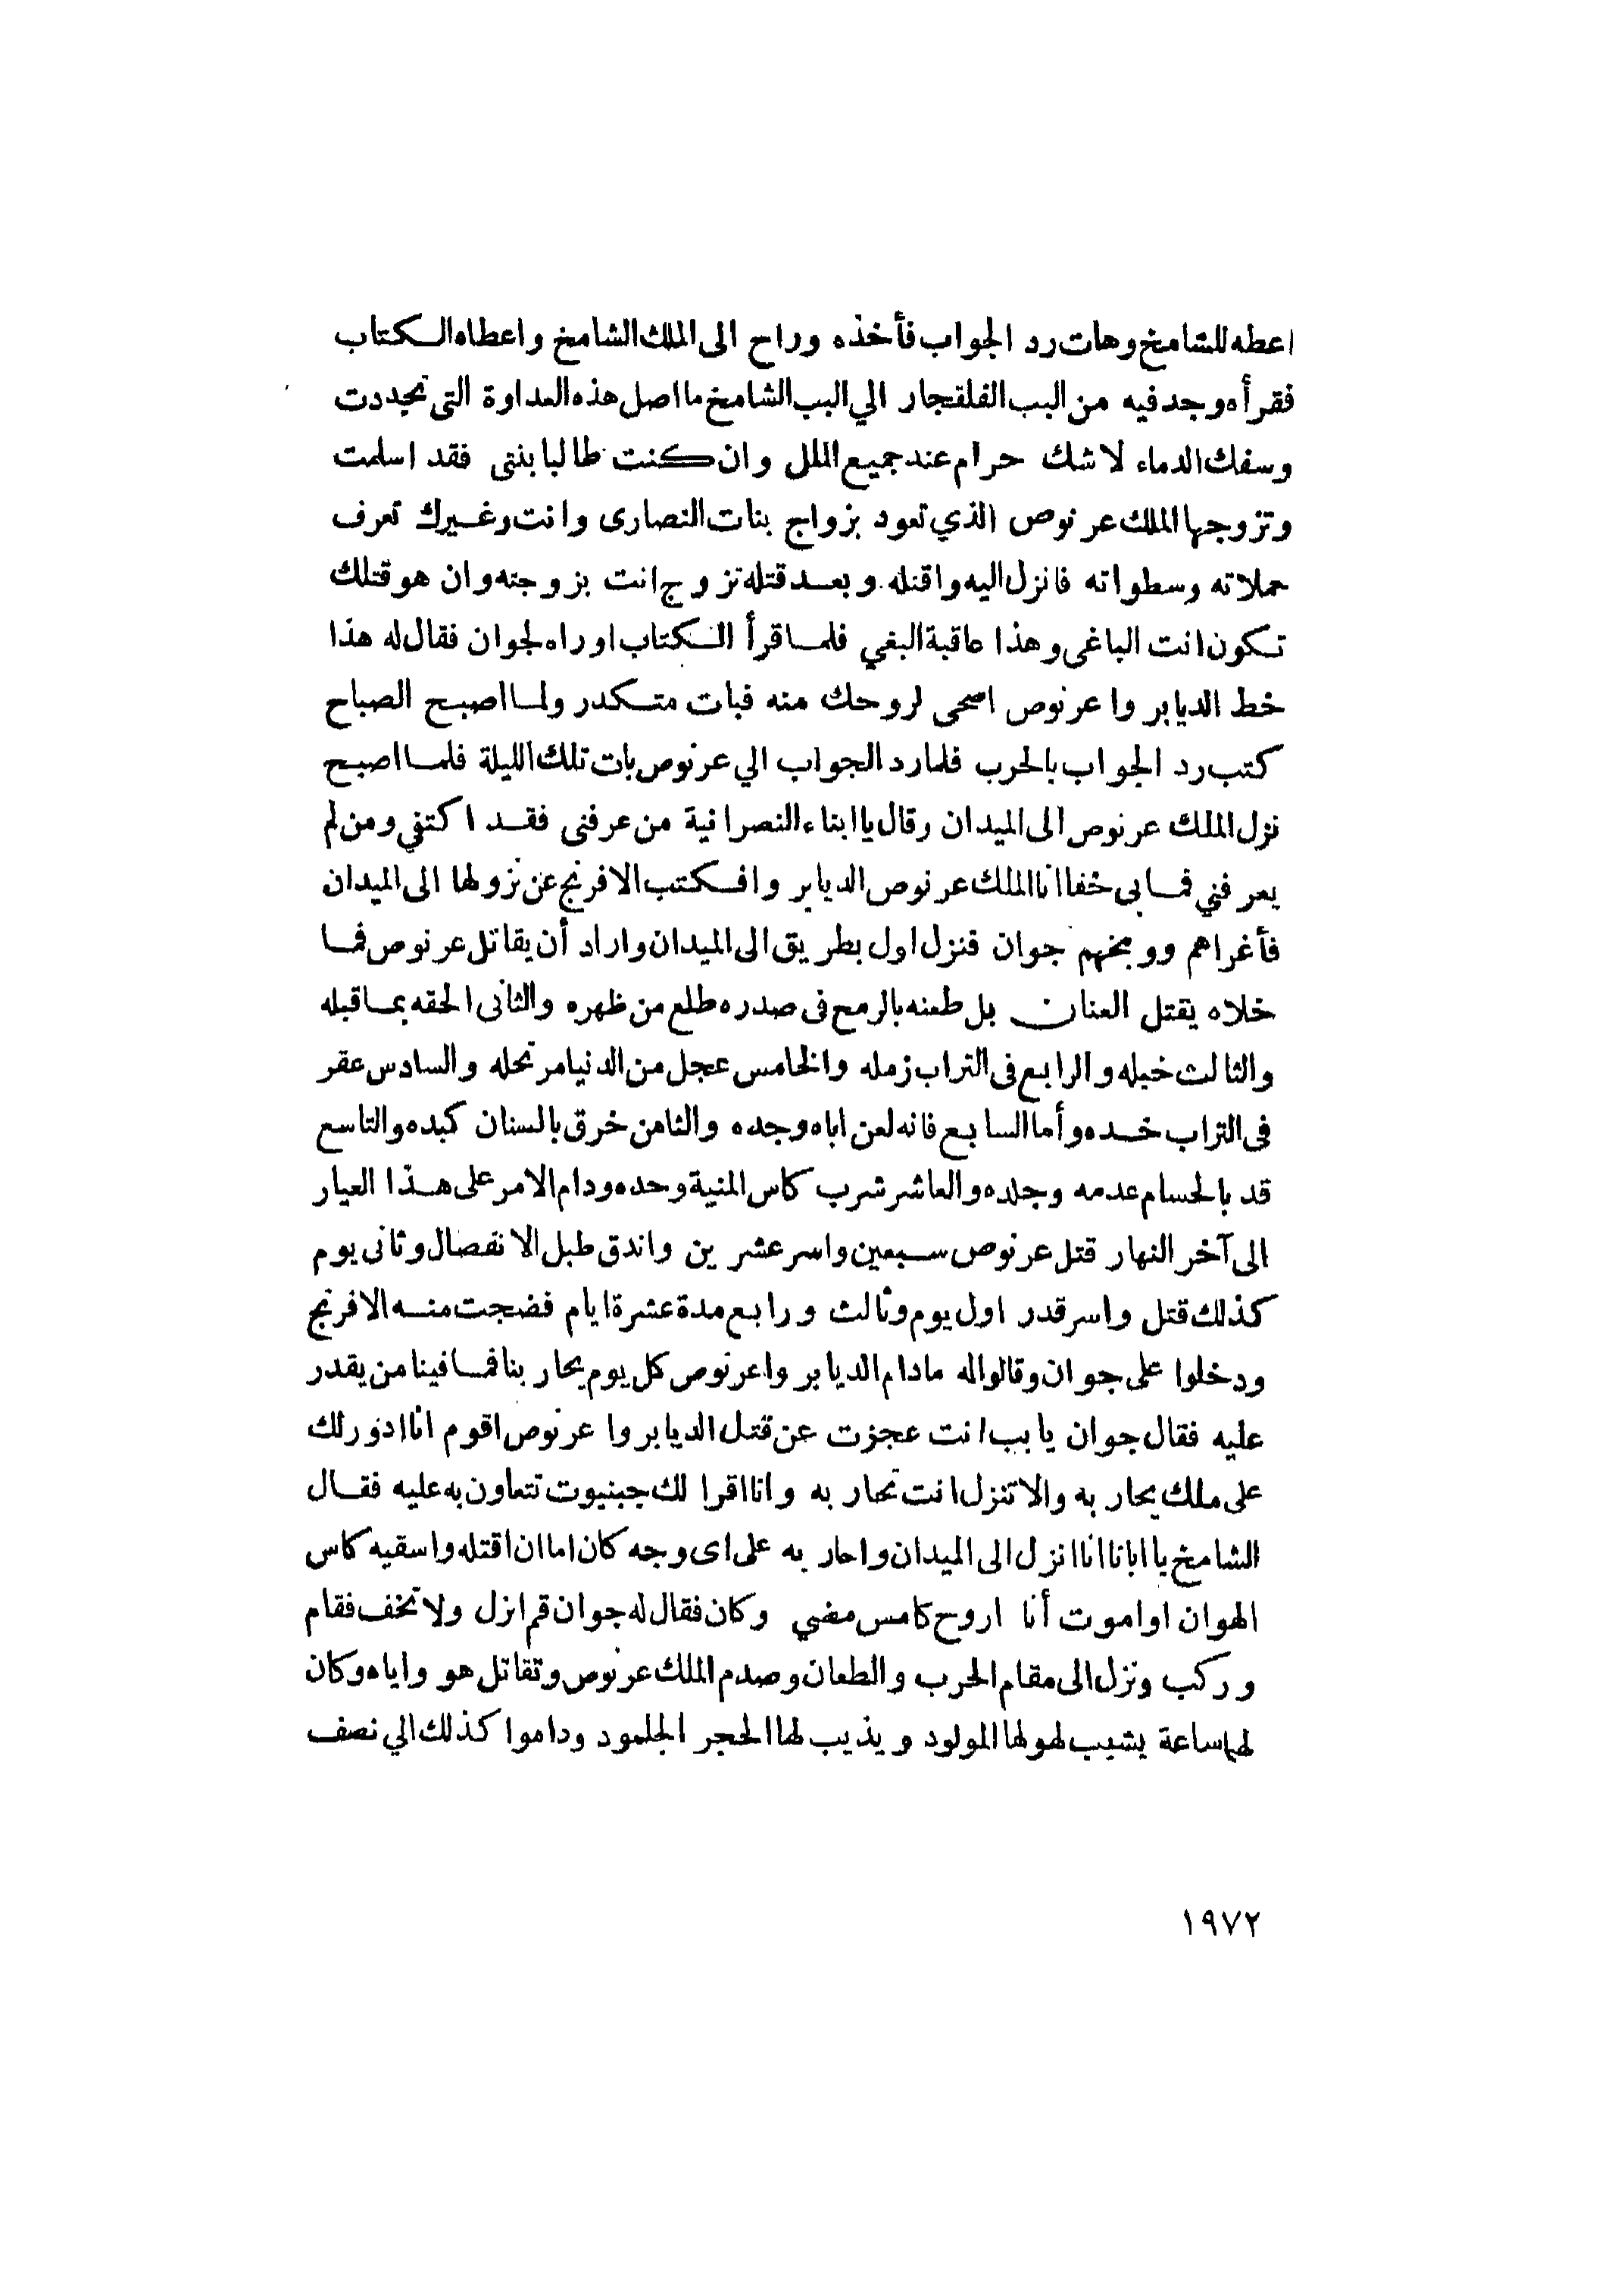 اعطه للشامخ وهات رد الجواب فأخذه وراح الى الملك الشامخ واعطاه الكتاب
فقرأه وجد فيه من البب الفلقجار الي البب الشامخ ما اصل هذه العداوة التى تجددت
وسفك الدماء لا شك حرام عند جميع الملل وان كنت طالبا بنتى فقد اسلمت
وتزوجها الملك عرنوص الذي تعود بزواج بنات النصارى وانت وغيرك تعرف
حملاته وسطواته فانزل اليه واقتله وبعد قتله تزوج انت بزوجته وان هو قتلك
تكون انت الباغى وهذا عاقبة البغي فلما قرأ الكتاب اوراه لجوان فقال له هذا
خط الديابر واعرنوص اصحى لروحك منه فبات متكدر ولما اصبح الصباح
كتب رد الجواب بالحرب فلما رد الجواب الي عرنوص بات تلك الليلة فلما اصبح
نزل الملك عرنوص الى الميدان وقال يا ابناء النصرانية من عرفنى فقد اكتفي ومن لم
يعرفني فما بى خفا انا الملك عرنوص الديابر وا فكتب الافرنج عن نزولها الى الميدان
فأغراهم ووبخهم جوان فنزل اول بطريق الى الميدان واراد أن يقاتل عرنوص فما
خلاه يقتل العنان بل طعنه بالرمح فى صدره طلع من ظهره والثانى الحقه بما قبله
والثالث خبله والرابع فى التراب زمله والخامس عجل من الدنيا مرتحله والسادس عقر
فى التراب خده وأما السابع فانه لعن اباه وجده والثامن خرق بالسنان كبده والتاسع
قد بالحسام عدمه وجلده والعاشر شرب كاس المنية وحده ودام الامر على هذا العيار
الى آخر النهار قتل عرنوص سبعين واسر عشرين واندق طبل الانفصال وثانى يوم
كذلك قتل واسر قدر اول يوم وثالث ورابع مدة عشرة ايام فضجت منه الافرنج
ودخلوا على جوان وقالوا له مادام الديابر واعرنوص كل يوم يحاربنا فما فينا من يقدر
عليه فقال جوان يا بب انت عجزت عن قتل الديابر وا عرنوص اقوم انا ادور لك
على ملك يحاربه والا تنزل انت تحاربه وانا اقرا لك جبنيوت تتعاون به عليه فقال
الشامخ يا ابانا انا انزل الى الميدان واحاربه على اى وجه كان اما ان اقتله واسقيه كاس
الهوان او اموت أنا اروح كامس مضي وكان فقال له جوان قم انزل ولا تخف فقام
وركب ونزل الى مقام الحرب والطعان وصدم الملك عرنوص وتقاتل هو واياه وكان
لها ساعة يشيب لهولها المولود ويذيب لها الحجر الجلمود وداموا كذلك الي نصف
١٩٧٢